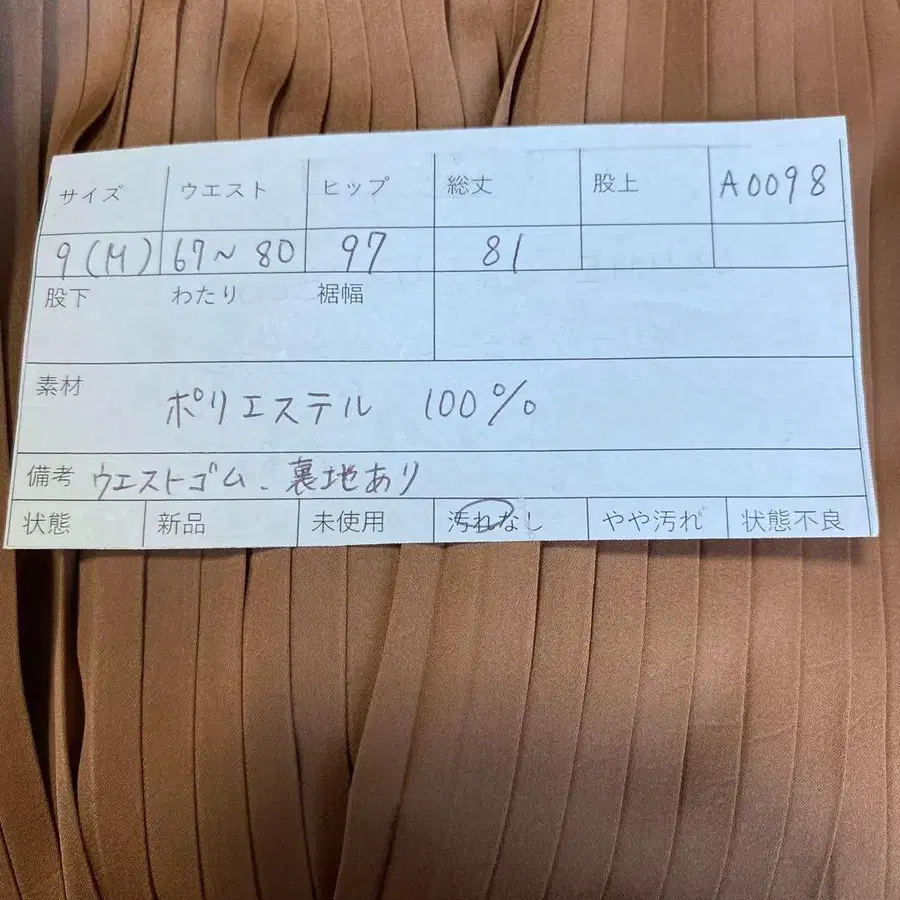 サイズ ウエスト ヒップ 総丈 股上 A0098
9(M) 67~80 97 81
股下 わたり 裾幅
素材
ポリエステル 100%
備考 ウエストゴム、裏地あり
状態 新品 未使用 汚れなし やや汚れ 状態不良